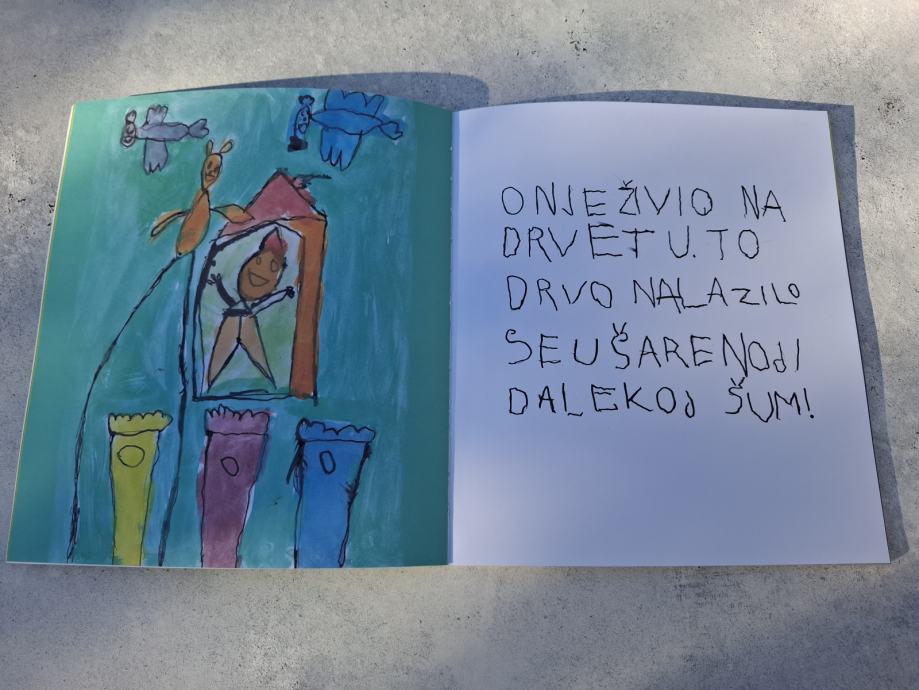 ON JE ŽIVIO NA
DRVETU. TO
DRVO NALAZILO
SE U ŠARENOJ I
DALEKOJ ŠUMI